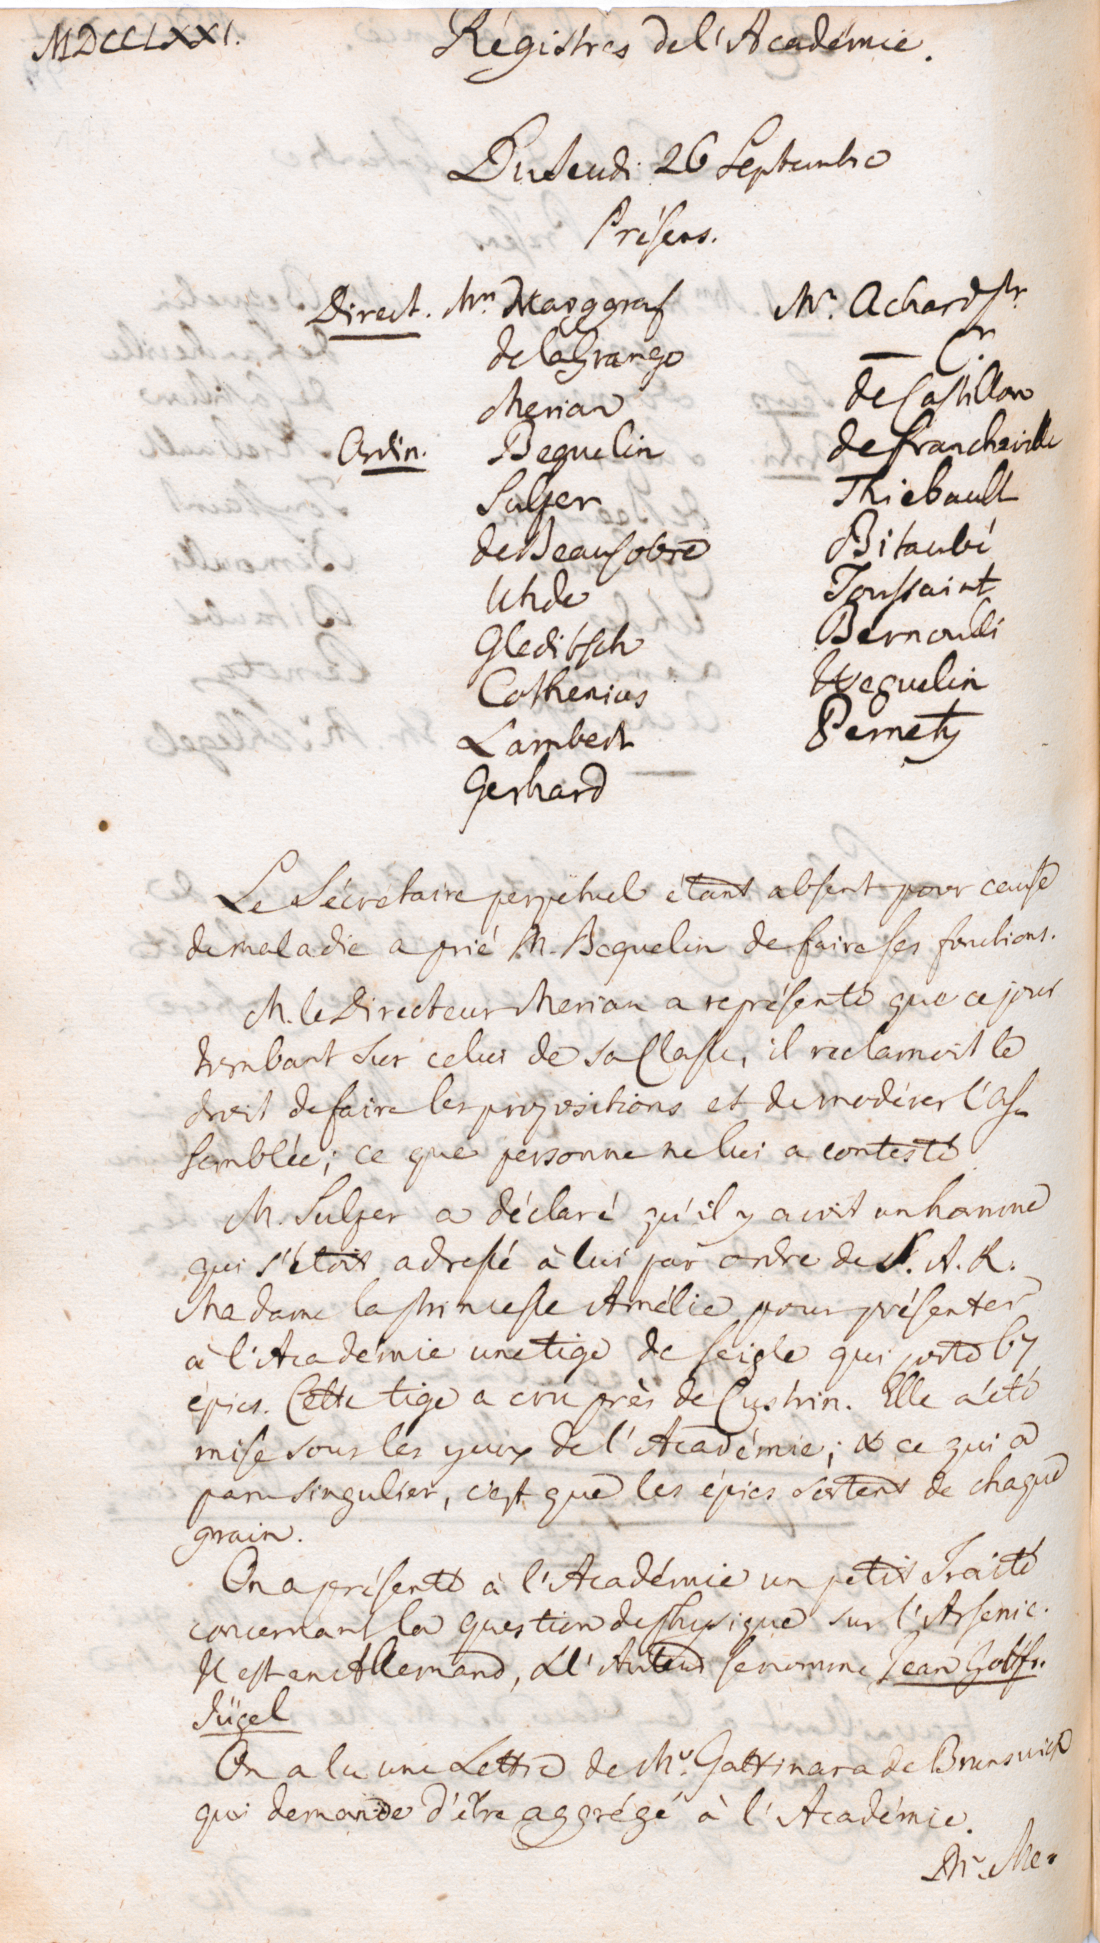 MDCCLXXI.
Régistres de l'Académie.
Du Jeudi 26 Septembre
Présens.
Direct. Mrs. Marggraf
de la Grange
Merian
Ordin. Beguelin
Sulzer
de Beausobre
Uhde
Gleditsch
Cothenius
Lambert
Gerhard
Mr. Achard Pr.
— C.
de Castillon
de Francheville
Thiebault
Bitaubé
Toussaint
Bernoulli
Weguelin
Pernety
Le Sécretaire perpétuel étant absent pour cause
de maladie a prié M. Beguelin de faire ses fonctions.
M. le Directeur Merian a représenté que ce jour
tombant sur celui de sa Classe, il reclamoit le
droit de faire les propositions et de modérer l'As-
semblée; ce que personne ne lui a contesté.
M. Sulzer a déclaré qu'il y avoit un homme
qui s'étoit adressé à lui par ordre de S. A. R.
Madame la Princesse Amélie pour présenter
à l'Académie une tige de seigle qui porte 67
épics. Cette tige a cru près de Custrin. Elle a été
mise sous les yeux de l'Académie; & ce qui a
paru singulier, c'est que les épics sortent de chaque
grain.
On a présenté à l'Académie un petit Traité
concernant la question de Physique sur l'Arsenic.
Il est en Allemand, & l'Auteur se nomme Jean Gottfr.
Jügel
On a lu une Lettre de Mr. Gattinara de Brunswick
qui demande d'être aggrégé à l'Académie.
Mr. Me-